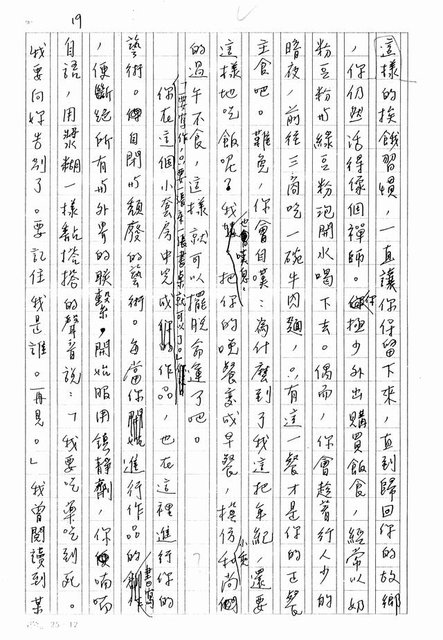 19
這樣的挨餓習慣,一直讓你保留下來,直到歸回你的故鄉
,你仍然活得像個禪師。你極少外出購買飯食,經常以奶
粉豆粉與綠豆粉泡開水喝下去。偶而,你會趁著行人少的
暗夜,前往三商吃一碗牛肉麵,有這一餐才是你的正餐
主食吧。難免,你會自嘆:為什麼到了我這把年紀,還要
這樣地吃飯呢?我也會嘆息。把你的晚餐變成早餐,模仿小乘和尚
的過午不食,這樣就可以擺脫命運了吧。
「要寫作,只要一張床一張書桌就可以了。」
你在這個小套房中完成你的作品,也在這裡進行你的
藝術。自閉與頹廢的藝術。每當你進行作品的書寫
,便斷絕所有與外界的聯繫,開始服用鎮靜劑,你喃喃
自語,用漿糊一樣黏搭搭的聲音說:「我要吃藥吃到死。
我要向妳告別了。要記住我是誰。再見。」我曾閱讀到某